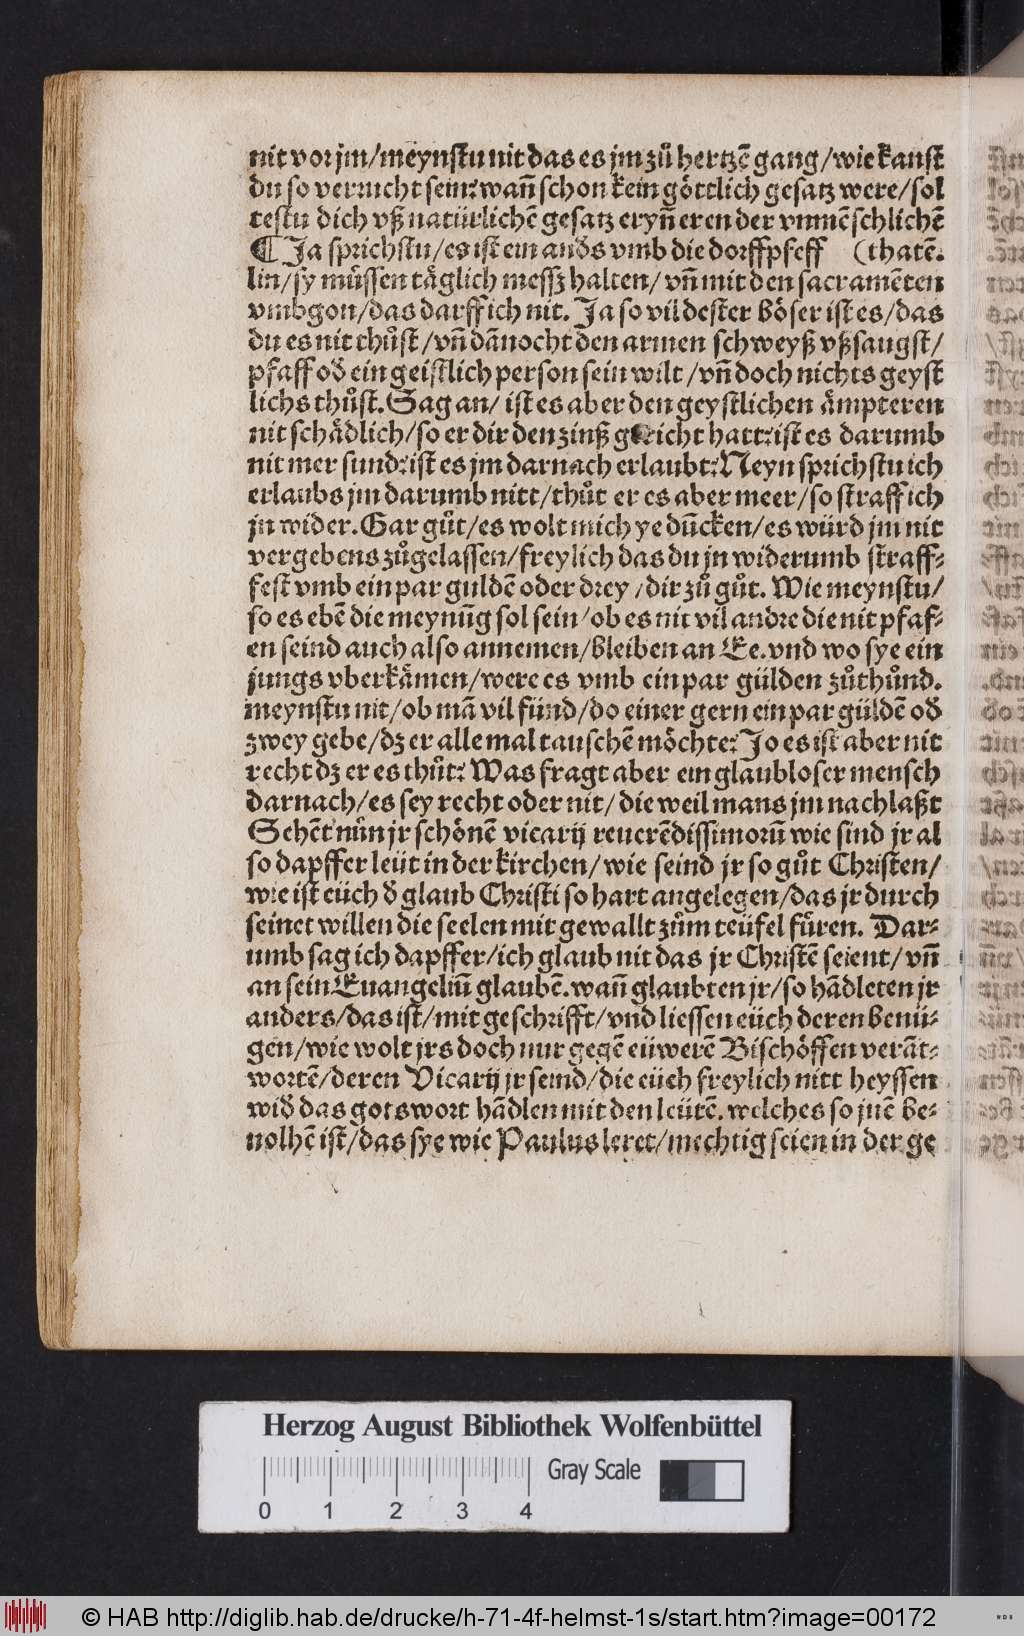 nit vor jm/meynstu nit das es jm zuͦ hertzẽ gang/wie kanst
du so verrucht sein? wañ schon kein göttlich gesatz were/sol
testu dich vß natürlichẽ gesatz eryñeren der vnmẽschlichẽ
¶ Ja sprichstu/es ist ein anđs vmb die dorffpfeff (thatẽ.
lin/sy müssen täglich messz halten/vñ mit den sacramẽten
vmbgon/das darff ich nit. Ja so vil dester böser ist es/das
du es nit thuͦst/vñ dãnocht den armen schweyß vßsaugst/
pfaff ođ ein geistlich person sein wilt/vñ doch nichts geyst
lichs thuͦst. Sag an/ ist es aber den geystlichen ämpteren
nit schädlich/so er dir den zinß gericht hatt? ist es darumb
nit mer sund? ist es jm darnach erlaubt? Neyn sprichstu ich
erlaubs jm darumb nitt/thuͦt er es aber meer/so straff ich
jn wider. Gar guͦt/es wolt mich ye dũcken/es würd jm nit
vergebens zuͦgelassen/freylich das du jn widerumb straff-
fest vmb ein par guldẽ oder drey/dir zuͦ guͦt. Wie meynstu/
so es ebẽ die meynũg sol sein/ob es nit vil andre die nit pfaf-
en seind auch also annemen/bleiben an Ee. vnd wo sye ein
jungs vberkämen/were es vmb ein par gülden zuͦthuͦnd.
meynstu nit/ob mã vil fünd/do einer gern ein par güldẽ ođ
zwey gebe/dz er alle mal tauschẽ möchte? Jo es ist aber nit
recht dz er es thuͦt? Was fragt aber ein glaubloser mensch
darnach/es sey recht oder nit/die weil mans jm nachlaßt
Sehẽt nůn jr schönẽ vicarij reuerẽdissimorũ wie sind jr al
so dapffer leüt in der kirchen/wie seind jr so guͦt Christen/
wie ist eüch đ glaub Christi so hart angelegen/das jr durch
seinet willen die seelen mit gewallt zuͦm teüfel füren. Dar-
umb sag ich dapffer/ich glaub nit das jr Christẽ seient/vñ
an sein Euangeliũ glaubẽ. wañ glaubten jr/so hãdleten jr
anders/das ist/mit geschrifft/vnd liessen eüch deren benü-
gen/wie wolt jrs doch nur gegẽ eüwerẽ Bischöffen verãt-
wortẽ/deren Vicarij jr seind/die eüch freylich nitt heyssen
wiđ das gots wort hãdlen mit den leütẽ. welches so jnẽ be-
uolhẽ ist/das sye wie Paulus leret/mechtig seien in der ge
Herzog August Bibliothek Wolfenbüttel
Gray Scale
0 1 2 3 4
© HAB http://diglib.hab.de/drucke/h-71-4f-helmst-1s/start.htm?image=00172